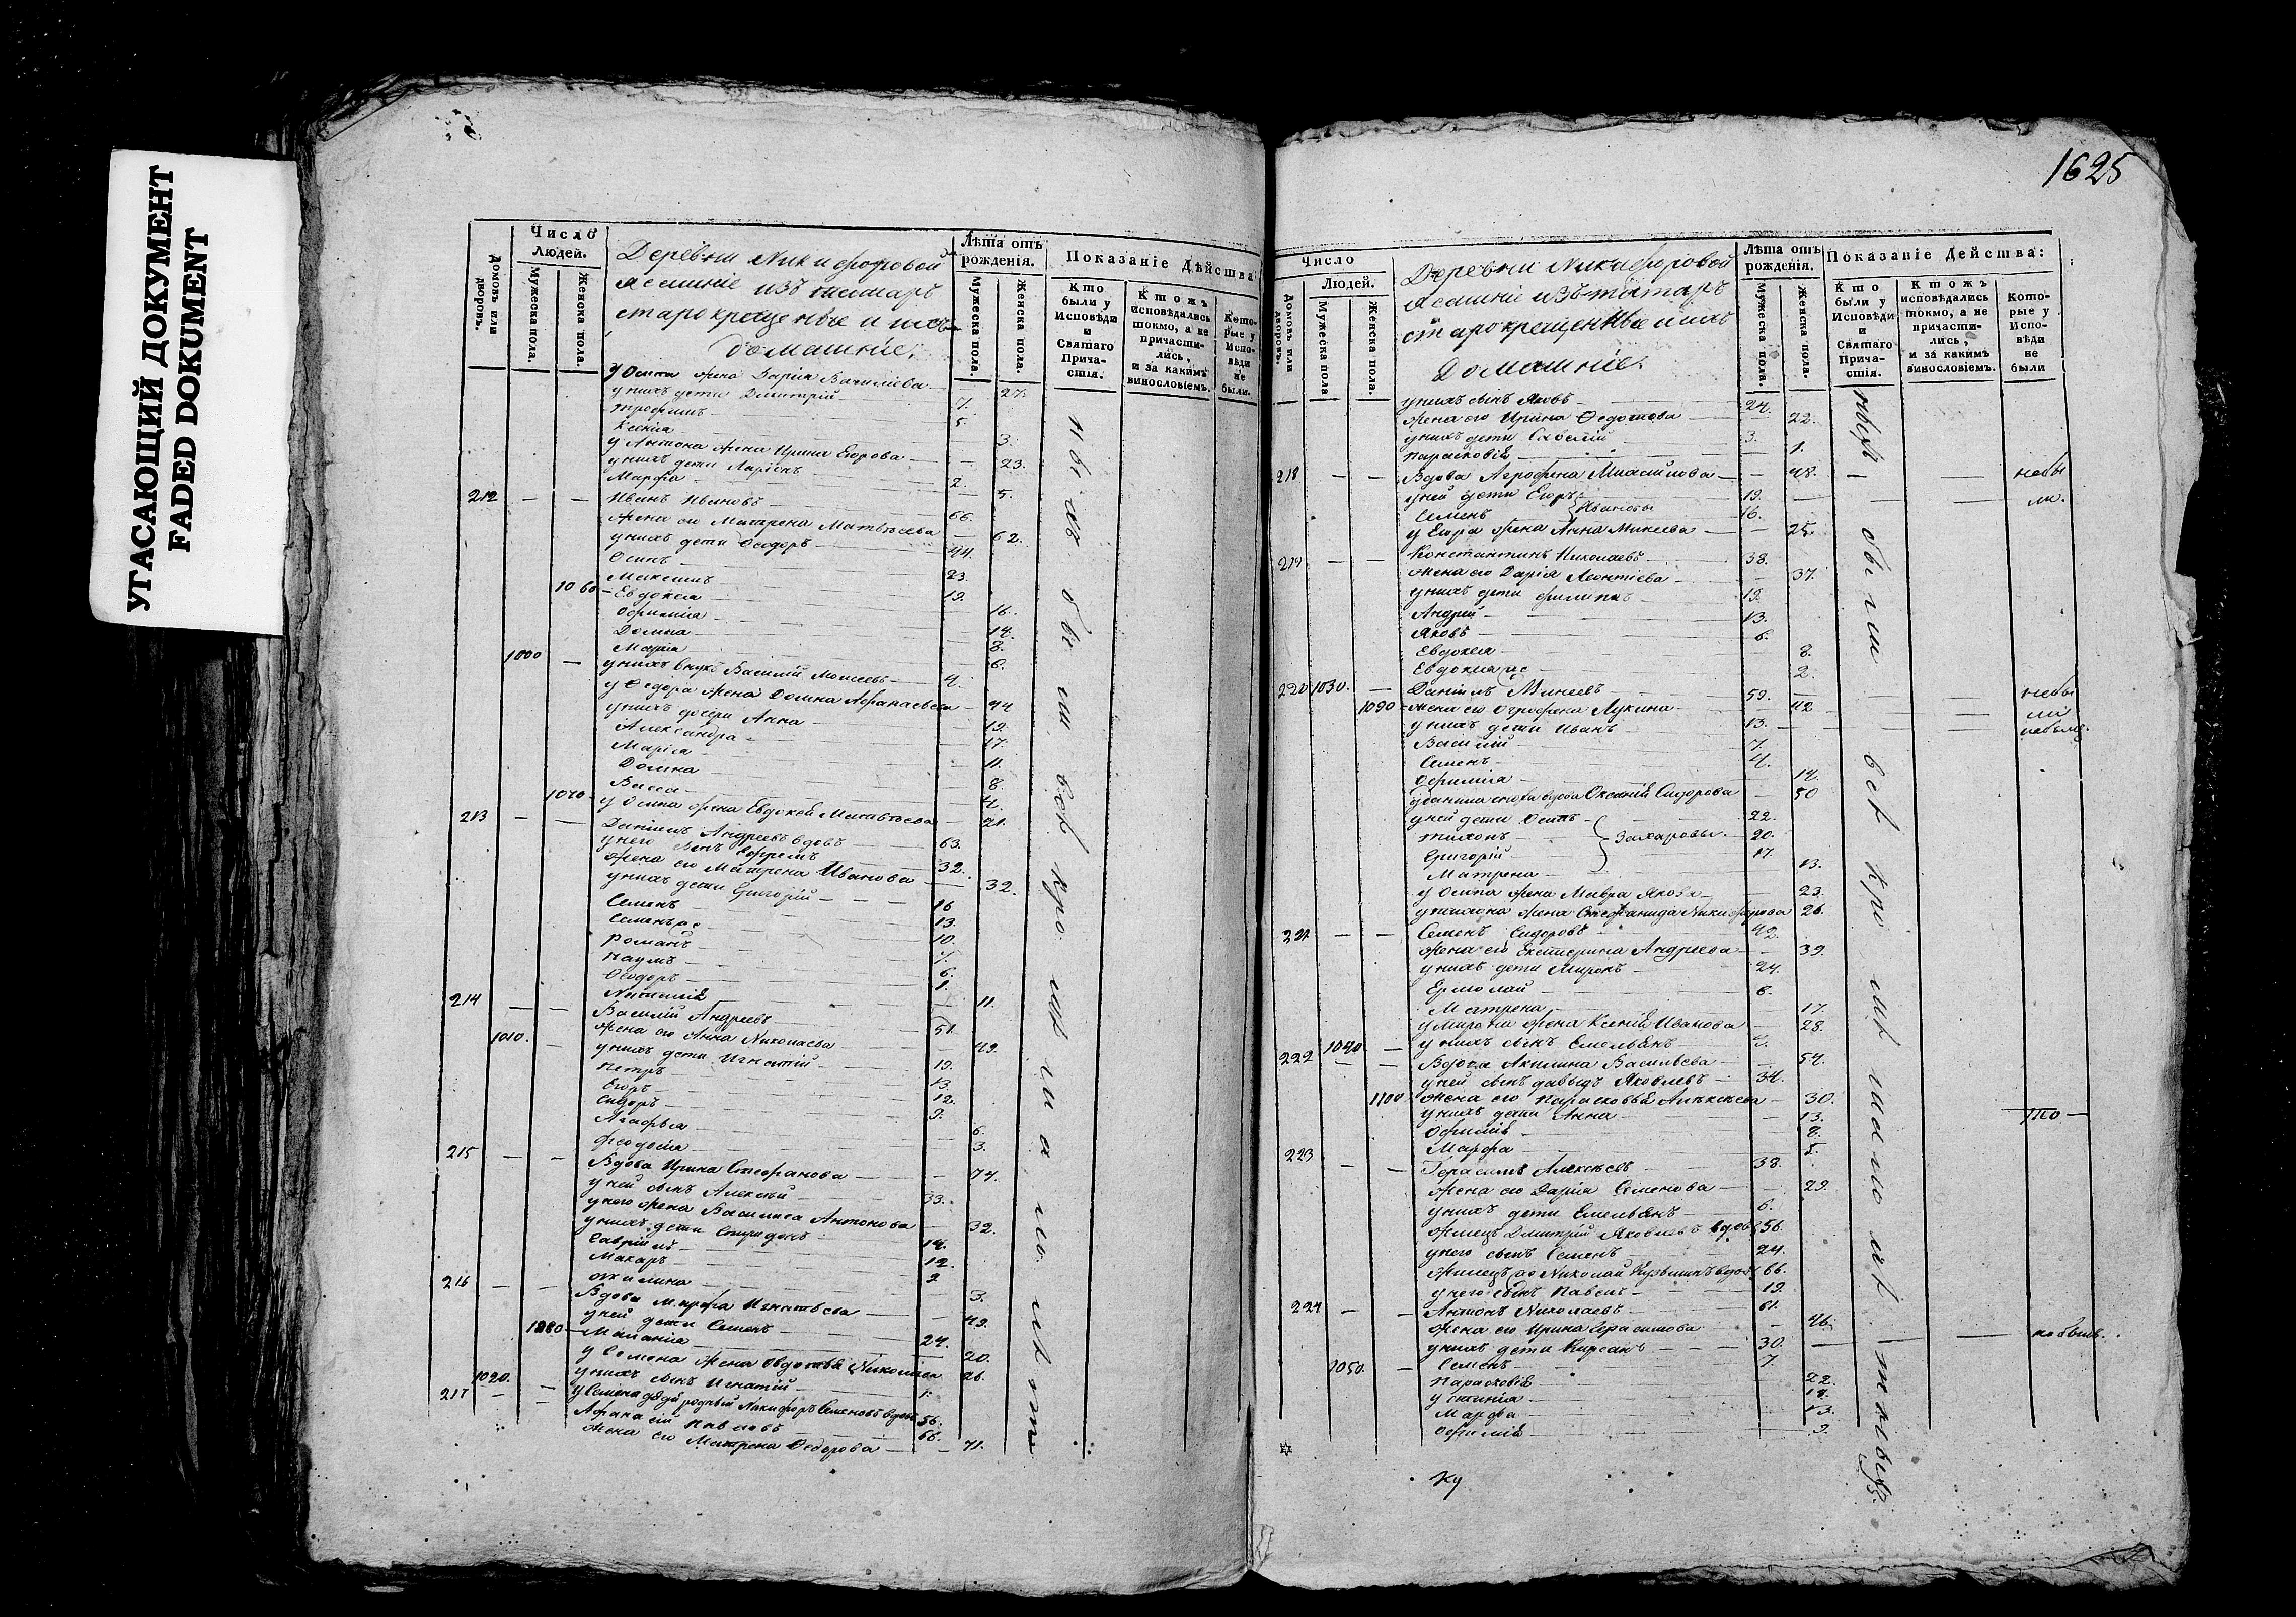 УГАСАЮЩИЙ ДОКУМЕНТ
FADED DOKUMENT
Домовъ или дворовъ.
Число Людей.
Мужеска пола.
Женска пола.
Деревни Никифоровой
ясашніе изъ татаръ
старокрещеные и ихъ
домашніе.
Лѣта отъ рожденія.
Мужеска пола.
Женска пола.
Показаніе Дѣйства:
Кто были у Исповѣди и Святаго Причастія.
Ктожъ исповѣдались токмо, а не причастились, и за какимъ винословіемъ.
Которые у Исповѣди не были.
У Осипа жена Дарія Василіева — 27.
у нихъ дети Дмитрій — 7.
Трофимъ — 5.
Ксенія — 3.
у Антона жена Ирина Егорова — 23.
у нихъ дети Ларіонъ — 2.
Марфа — 5.
212 — — Иванъ Ивановъ — 66.
жена его Матрена Матвѣева — 62.
у нихъ дети Феодоръ — 44.
Осипъ — 23.
Максимъ — 19.
1060 — Евдокея — 16.
Офимія — 14.
Домна — 8.
Марія — 6.
1000 — у нихъ внукъ Василій Моисеевъ — 4.
у Федора жена Домна Афанасьева — 44
у нихъ дочери Анна — 19.
Александра — 17.
Марія — 11.
Домна — 8.
Васса — 4.
1070 у Осипа жена Евдокея Матвѣева — 21.
213 — — Даніилъ Андреевъ вдовъ — 63.
у него сынъ Ефремъ — 32.
жена его Матрена Иванова — 32.
у нихъ дети Григорій — 16
Семенъ — 13.
Семенъ же — 10.
Романъ — 7.
Наумъ — 6.
Феодоръ — 1.
Наталія — 11.
214 — — Василій Андреевъ — 51.
1010. — жена его Анна Николаева — 49.
у нихъ дети Игнатій — 19.
Петръ — 13.
Егоръ — 12.
Сидоръ — 9.
Агафья — 6.
Феодосія — 3.
215 — — Вдова Ирина Стефанова — 74.
у ней сынъ Алексѣй — 33.
у него жена Василиса Антонова — 32.
у нихъ дети Спиридонъ — 14.
Гавріилъ — 12.
Макаръ — 2
— 3.
216 — — Вдова Марфа Игнатьева — 49.
у ней дети Семенъ — 24.
1080 — Маланія — 20.
у Семена жена Авдотья Николаева 26.
1020. — у нихъ сынъ Игнатій — 1.
у Семена дядя родный Никифоръ Семеновъ вдовъ 56.
217 — — Афанасій Павловъ — 66.
жена его Матрена Федорова — 71.
1625
Домовъ или дворовъ.
Число Людей.
Мужеска пола
Женска пола.
Деревни Никифоровой
ясашніе изъ татаръ
старокрещенные и ихъ
домашніе.
Лѣта отъ рожденія.
Мужеска пола.
Женска пола.
Показаніе Действа:
Кто были у Исповѣди и Святаго Причастія.
Ктожъ исповѣдались токмо, а не причастились, и за какимъ винословіемъ.
Которые у Исповѣди не были
у нихъ сынъ Яковъ — 24.
жена его Ирина Федотова — 22.
у нихъ дети Савелій — 3.
Парасковія — 1.
218 — — Вдова Агрофена — 48. — — небы
у ней дети Егоръ — 19. — — ли.
Семенъ } Ивановы 16.
у Егора жена Анна Минеева — 25.
219 — — Константинъ Николаевъ — 38.
жена его Дарія Леонтіева — 37.
у нихъ дети Филипъ — 19
Андрей — 13.
Яковъ — 6.
Евдокея — 8.
Евдокиа же — 2.
220 1030. — Даніилъ Минеевъ — 59. — — небы
1090 — жена его Огрофена Лукина — 42 — — ли
у нихъ дети Иванъ — 13. — — небылъ.
Василій — 7.
Семенъ — 4.
Офимія — 14.
у Данила сноха вдова Оксинія Сидорова — 50
у ней дети Осипъ — 22.
Тихонъ } Захаровы — 20.
Григорій — 17.
Матрена — 13.
у Осипа жена Мавра Якова — 23.
у Тихона жена Стефанида Никифорова 26.
221 — — Семенъ Сидоровъ — 42.
жена его Екатерина Андреева — 39.
у нихъ дети Миронъ — 24.
Ермолай — 6.
Матрена — 17.
у Мирона жена Ксенія Иванова — 28.
1040 — у нихъ сынъ Емельянъ
222 — Вдова Акилина Васильева — 54.
у ней сынъ Давыдъ Яковлевъ — 34.
1100 жена его Парасковья Алексеева — 30.
у нихъ дети Анна — 13.
Офимія — 8.
Марфа — 5.
223 — — Герасимъ Алексѣевъ — 38.
жена его Дарія Семенова — 29.
у нихъ дети Емельянъ — 6.
жилецъ Дмитрій Яковлевъ вдовъ 56.
у него сынъ Семенъ — 24.
жилецъ же Николай Кузьминъ вдовъ 66.
у него сынъ Павелъ — 19.
224 — — Антонъ Николаевъ — 61.
жена его Ирина Герасимова — 46.
у нихъ дети Кирсанъ — 30. — — небылъ.
1050. — Семенъ — 7.
Парасковія — 22.
Устинія — 18.
Марфа — 13.
Офимія — 9.